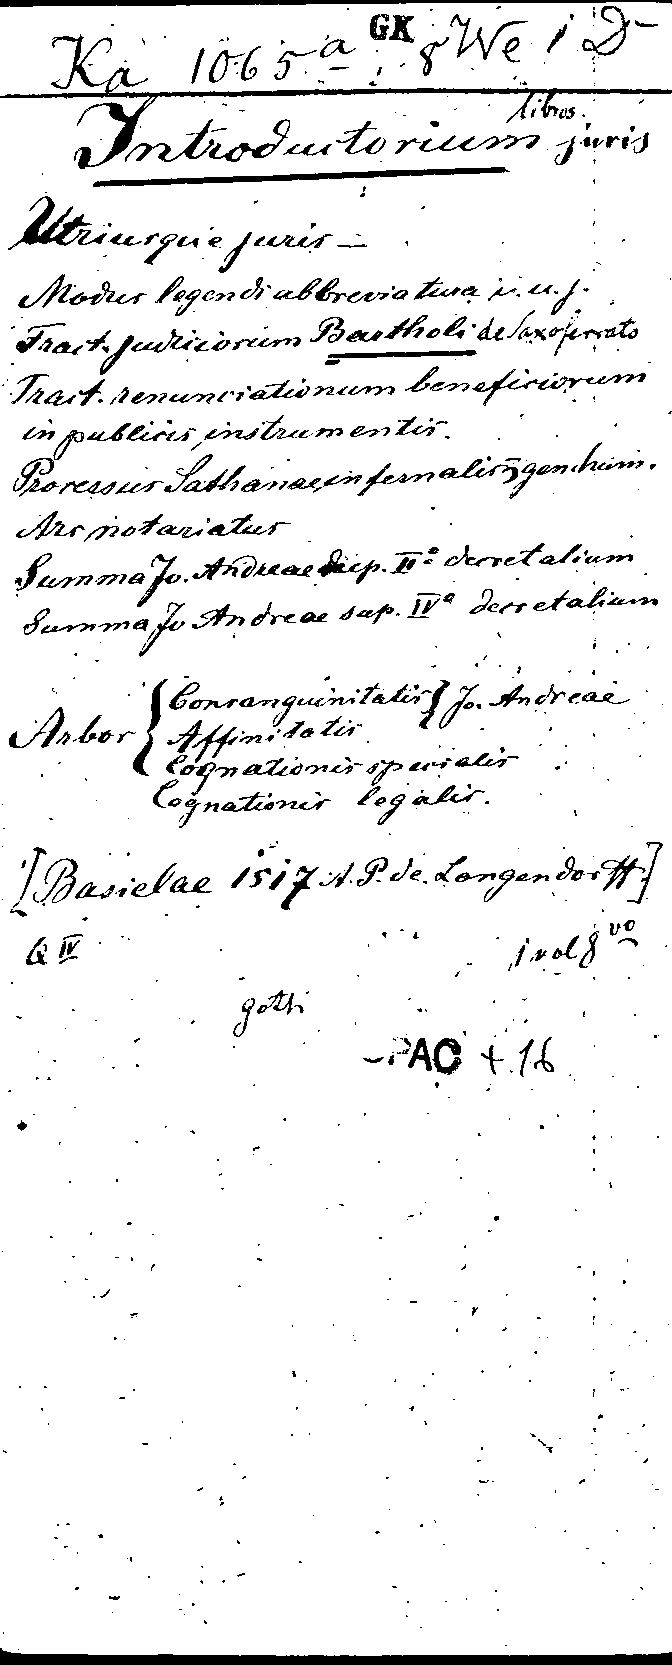 Ka 1065 a GK 8 We 1 D
libros
Introductorium juris
Utriusque juris —
Modus legendi abbreviatura i. u. j.
Tract. judiciorum Bartholi de Saxoferrato
Tract. renunciationum beneficiorum
in publicis instrumentis.
Processus Sathanae infernalis gen. hum.
Ars notariatus
Summa Jo. Andreae sup. IIº decretalium
Summa Jo Andreae sup. IVº decretalium
Arbor { Consanguinitatis } Jo. Andreae
Affinitatis
Cognationis specialis
Cognationis legalis.
[Basielae 1517 A. P. de. Langendorff]
Q IV 1 vol 8 vo
goth
PAC + 16